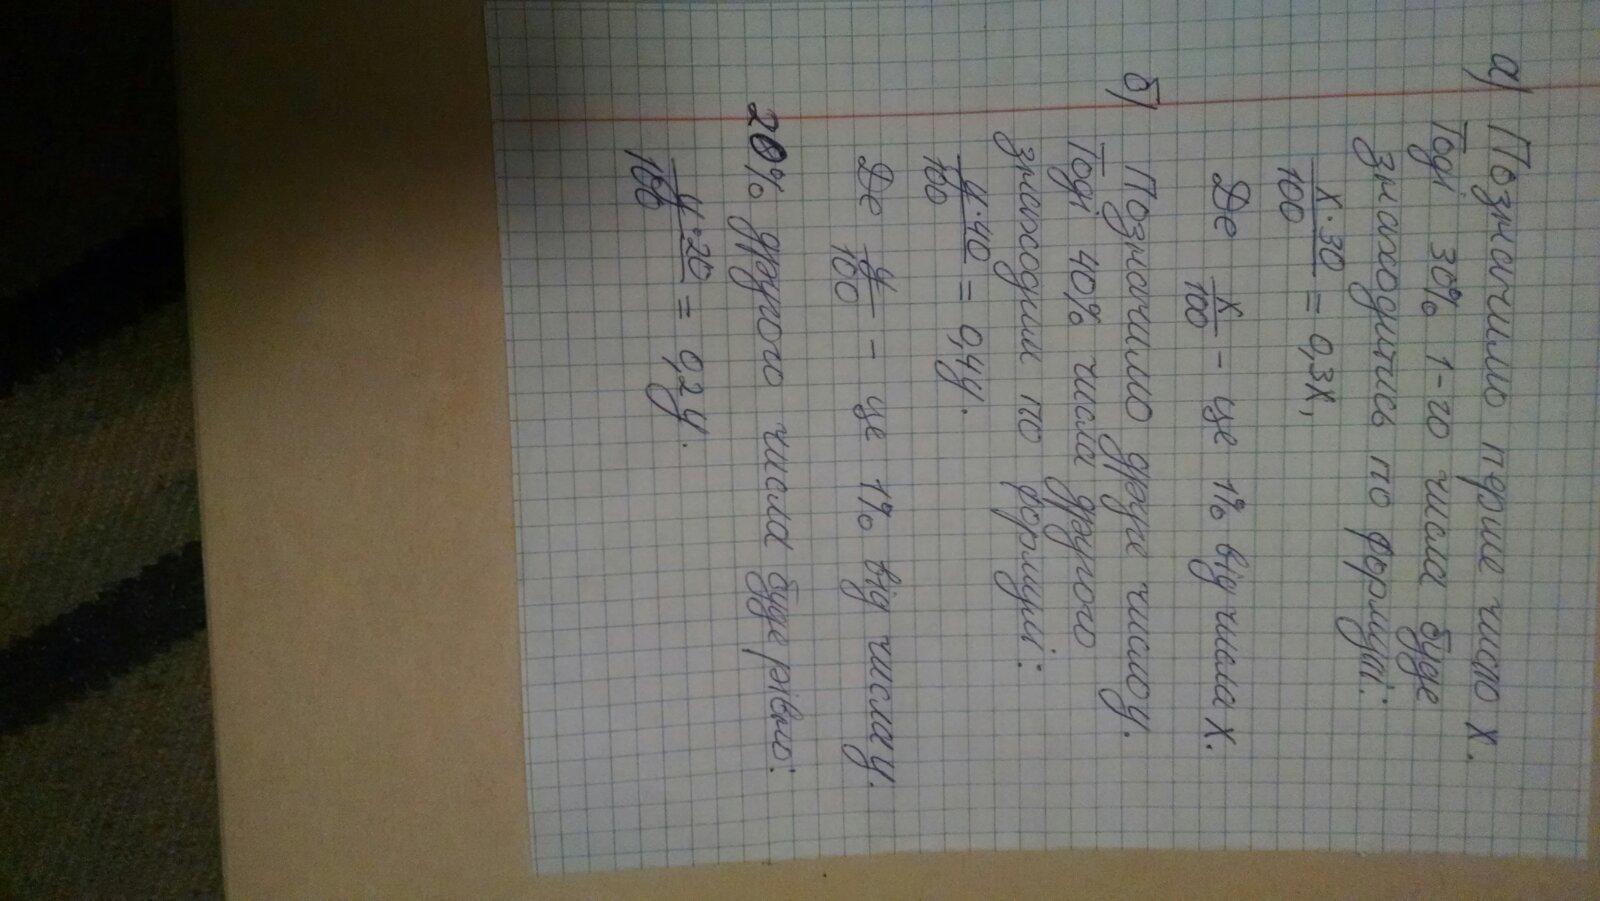 а) Позначимо перше число х.
Тоді 30% 1-го числа буде
знаходитись по формулі:
х·30/100 = 0,3х,
Де х/100 - це 1% від числа х.
б) Позначимо друге число у.
Тоді 40% числа другого
знаходим по формулі:
у·40/100 = 0,4у.
Де у/100 - це 1% від числа у.
20% другого числа буде рівно:
у·20/100 = 0,2у.